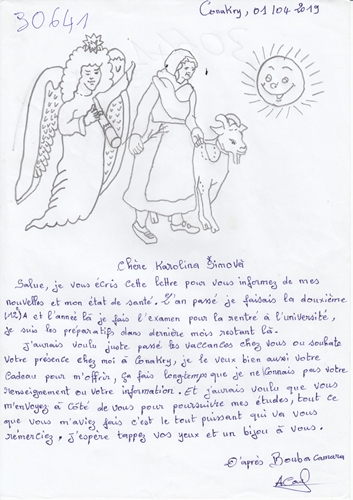 30641
Conakry, 01/04 2019
Chère Karolina Šimová
Salue, je vous écris cette lettre pour vous informez de mes
nouvelles et mon état de santé. L'an passé je faisais la douxième
(12)A et l'année là je fais l'examen pour la rentré à l'université,
je suis les préparatifs dans dernière mois restant là.
j'aurais voulu juste passé les vaccances chez vous ou souhate
votre présence chez moi à Conakry, je le veux bien aussi votre
Cadeau pour m'offrir, ça fais longtemps que je ne connais pas votre
renseignement ou votre information. Et j'aurais voulu que vous
m'envoyez à côté de vous pour poursuivre mes études, tout ce
que vous m'aviez fais c'est le tout puissant qui va vous
rémerciez, j'espère tappez vos yeux et un bijou à vous.
D'après Bouba camara